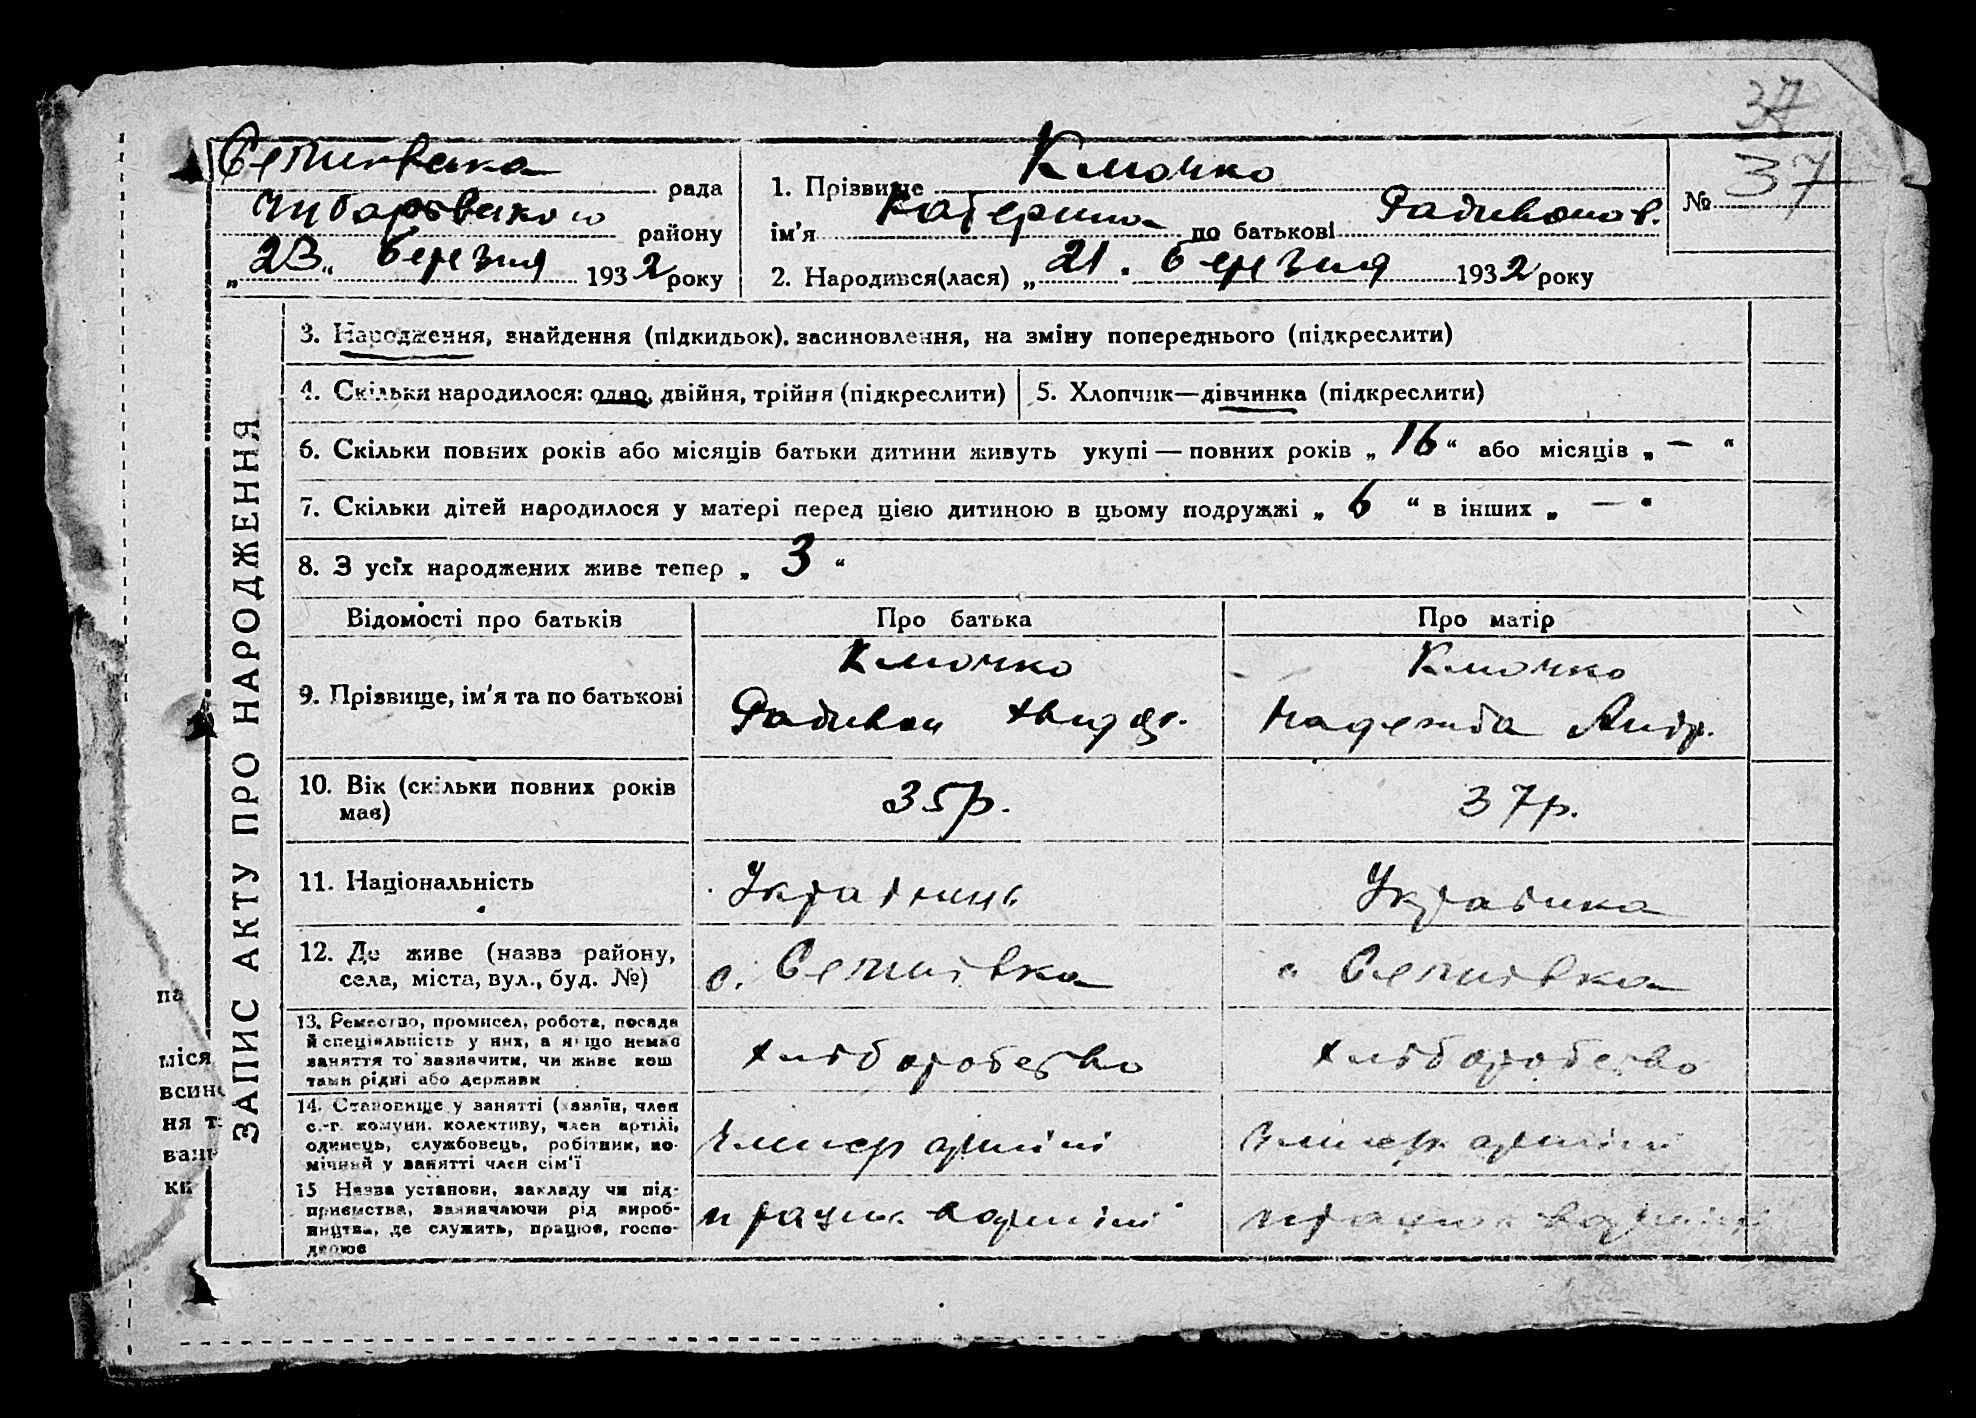 37
Семенівська рада
Чубарівського району
„23“ березня 1932 року
1. Прізвище Клочко
ім'я Катерина по батькові Радивонов.
№ 37
2. Народився(лася) „21. березня 1932 року
3. Народження, знайдення (підкидьок), засиновлення, на зміну попереднього (підкреслити)
4. Скільки народилося: одно, двійня, трійня (підкреслити)
5. Хлопчик—дівчинка (підкреслити)
6. Скільки повних років або місяців батьки дитини живуть укупі — повних років „16“ або місяців „—“
7. Скільки дітей народилося у матері перед цією дитиною в цьому подружжі „6“ в інших „—“
8. З усіх народжених живе тепер „3“
ЗАПИС АКТУ ПРО НАРОДЖЕННЯ
Відомості про батьків
Про батька
Про матір
9. Прізвище, ім'я та по батькові
Клочко
Радивон
Клочко
Надежда Андр.
10. Вік (скільки повних років
має)
35р.
37р.
11. Національність
Українець
Українка
12. Де живе (назва району,
села, міста, вул., буд. №)
с. Семенівка
с. Семенівка
13. Ремество, промисел, робота, посада
й спеціяльність у них, а якщо немає
заняття то зазначити, чи живе кош
тами рідні або держави
хліборобство
хліборобство
14. Становище у занятті (хазяїн, член
с.-г. комуни, колективу, член артілі,
одинець, службовець, робітник, по-
мічний у занятті член сім'ї
член артілі
член артілі
15 Назва установи, закладу чи під-
приємства, зазначаючи рід вироб-
ництва, де служить, працює, госпо-
дарює
працює в артілі
працює в артілі
па
міся
всино
ня т
ван
ки